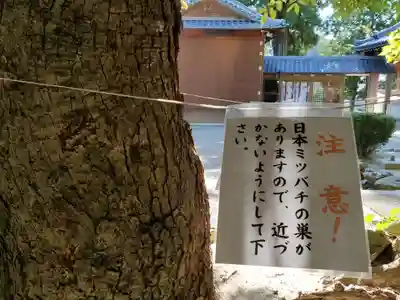 注意!
日本ミツバチの巣が
ありますので、近づ
かないようにして下
さい。